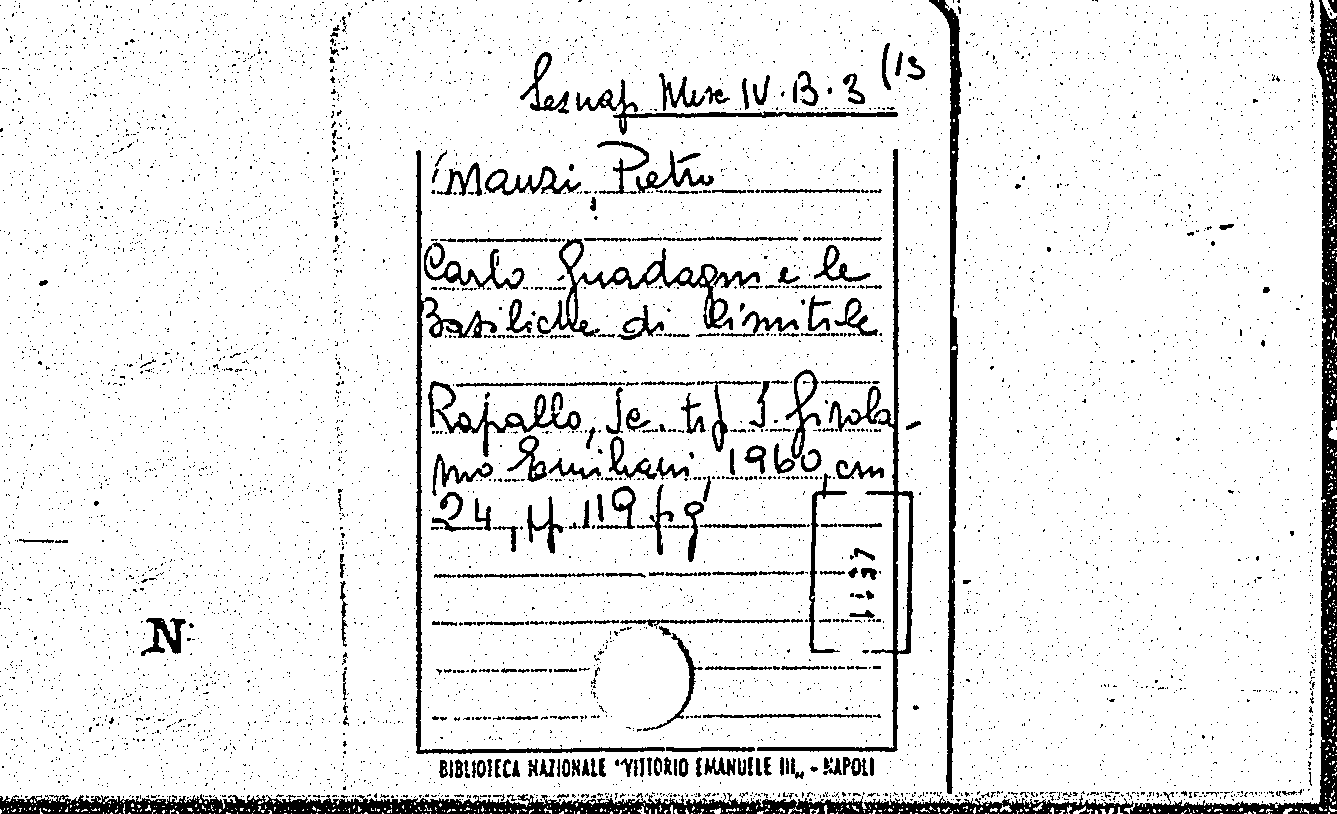 Seznap Misc IV.B.3 (13
Manzi, Pietro
Carlo Guadagni e le
Basiliche di Cimitile
Rapallo, Sc. tip S. Girola-
mo Emiliani, 1960, cm
24, pp. 119 fg
N
BIBLIOTECA NAZIONALE "VITTORIO EMANUELE III„ - NAPOLI